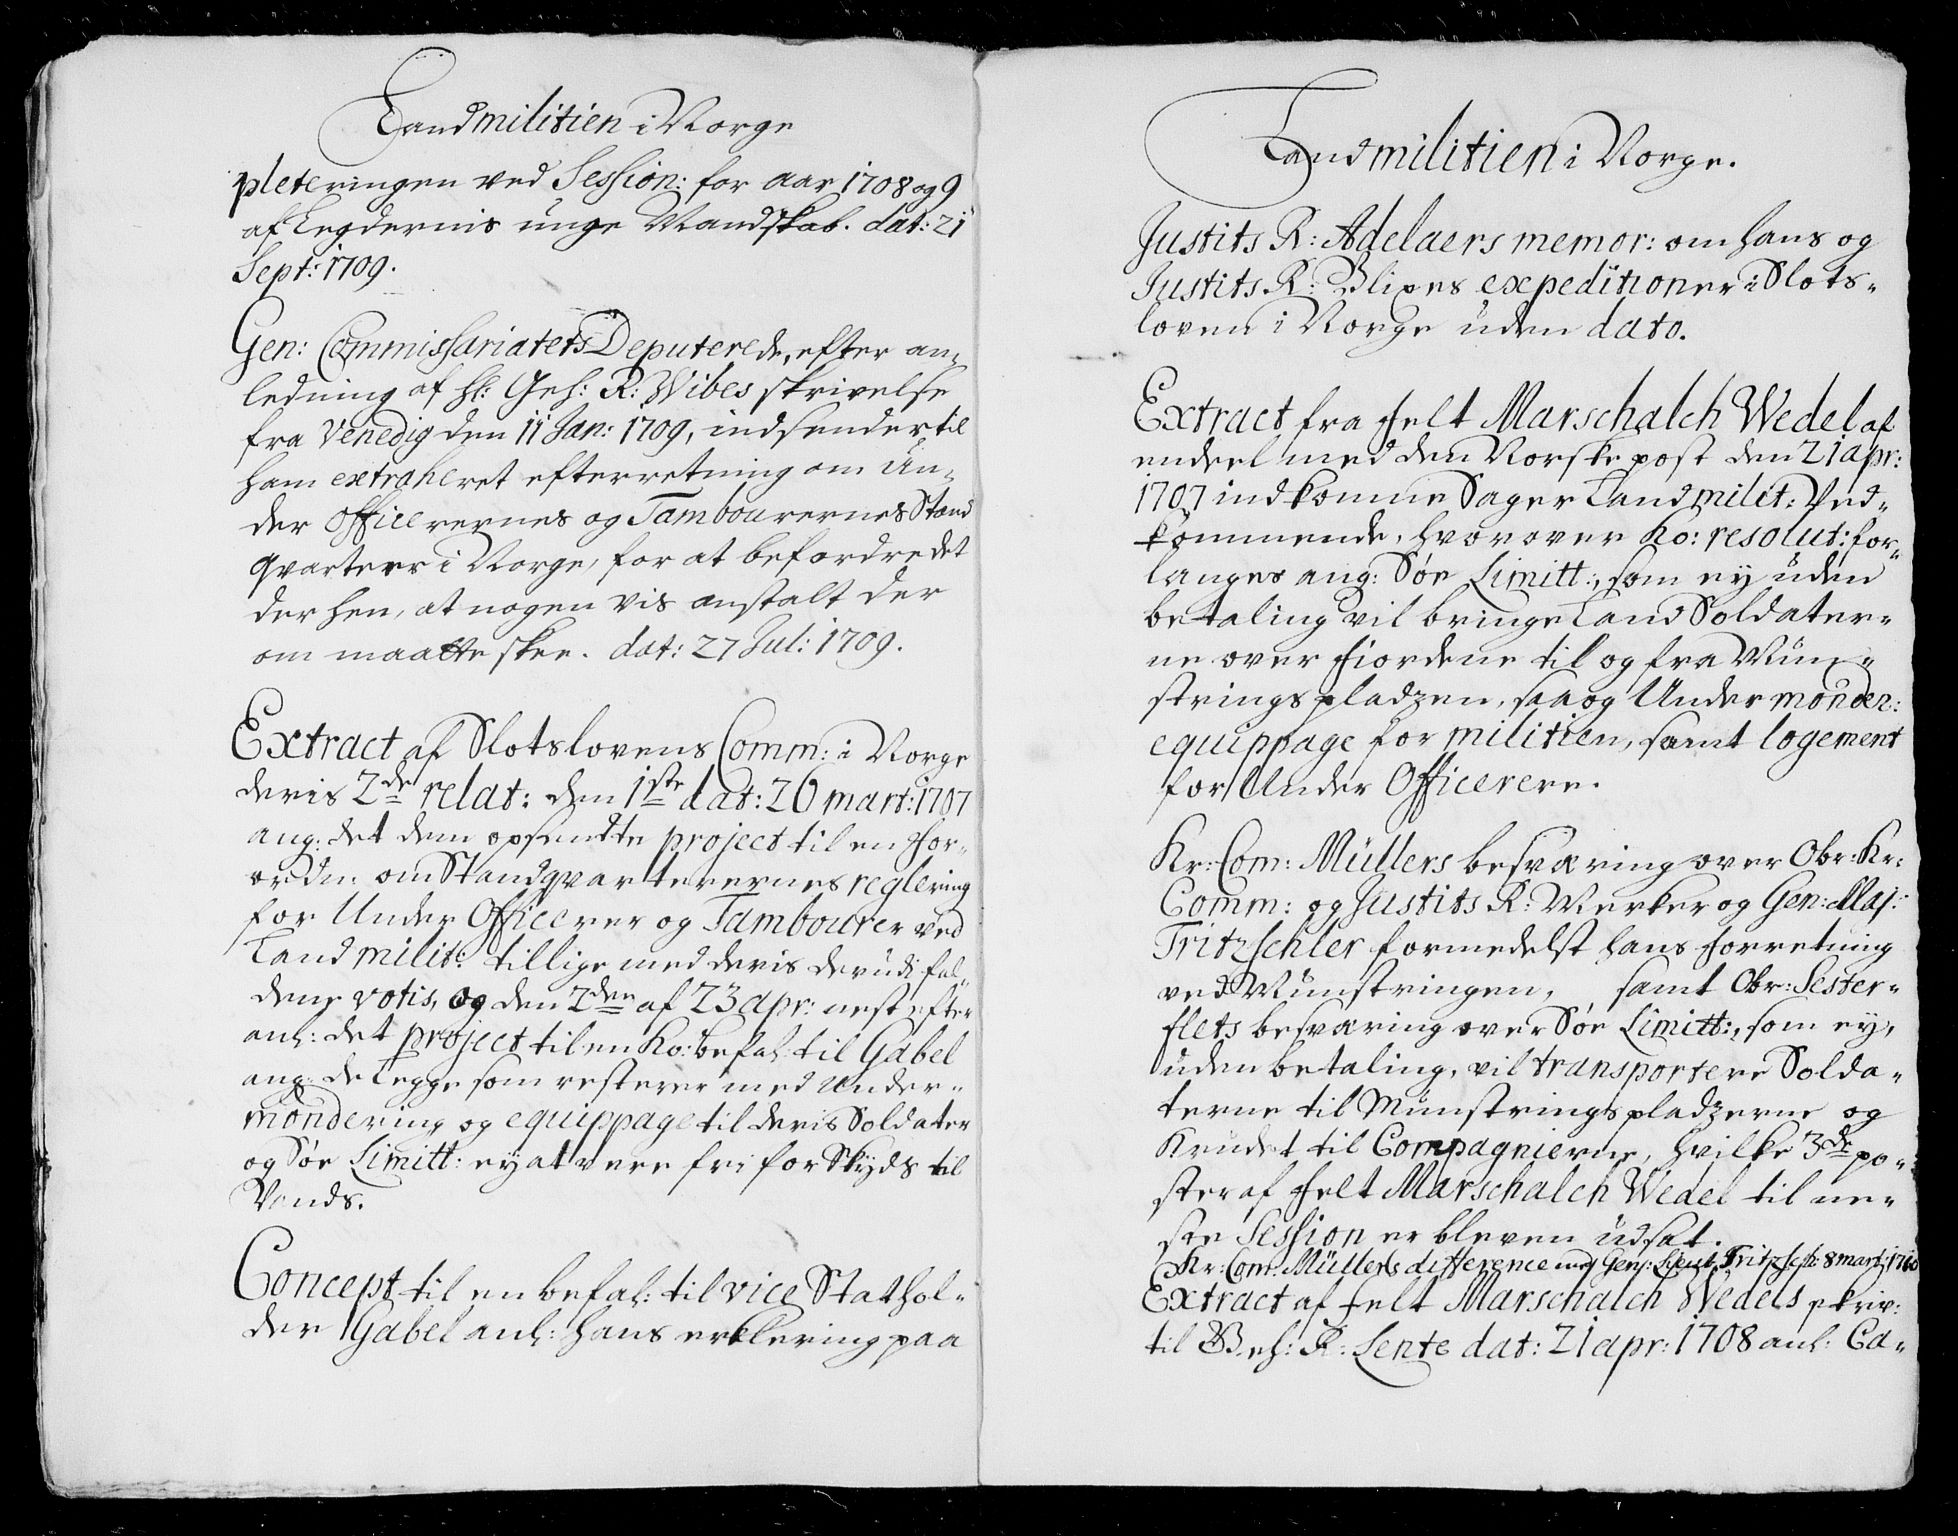 Landmilitien i Norge
pleteringen ved Session: for aar 1708 og 9
af Legdernis unge Mandskab. dat: 21
Sept: 1709.
Gen: Commissariatets Deputerede, efter an-
ledning af Hl: Geh: R: Wibes skrivelse
fra Venedig den 11 Jan: 1709, indsender til
ham extraheret efterretning om Un-
der Officerernes og Tambourernes Stand
qvarterer i Norge, for at befordre det
der hen, at nogen vis anstalt der
om maatte skee. dat: 27 Jul: 1709.
Extract af Slotslovens Comm: i Norge
deris 2de relat: den 1ste dat: 26 mart: 1707
ang: det dem opsendte project til en For-
ordn: om Standqvarterernes reglering
for Under Officerer og Tambourer ved
Land milit: tillige med deris derudi fal-
dene votis, og den 2den af 23 apr: nest efter
anl: det project til en Ko: befal: til Gabel
ang: de Legge som resterer med Under-
mondering og equippage til deris Soldater
og Søe Limitt: ey at vere fri for Skyds til
Vands.
Concept til en befal: til vice Stathol-
der Gabel anl: hans erklering paa
Landmilitien i Norge.
Justits R: Adelaers memor: om hans og
Justits R: Blixes expeditioner i Slots-
loven i Norge uden dato.
Extract fra Felt Marschalch Wedel af
endeel med den Norske post den 21 apr:
1707 indkomne Sager Land milit: Ved-
kommende, hvorover Ko: resolut: for-
langes ang: Søe Limitt:, som ey uden
betaling vil bringe Land Soldater-
ne over Fiordene til og fra Mün-
strings pladzen, saa og Under monder:
equippage for militien, samt logement
for Under Officerere.
Kr: Com: Müllers besværing over Obr: Kr:
Comm: og Justits R: Werker og Gen: Maj:
Tritzschler formedelst hans forretning
ved Münstringen, samt Obr: Sester-
flets besværing over Søe Limitt:, som ey,
uden betaling, vil transportere Solda-
terne til Munstringspladzerne og
Krudet til Compagnierne, hvilke 3de po-
ster af Felt Marschalch Wedel til ne-
ste Session er bleven udsat.
Kr: Com: Müllers difference med Gen: Lieut: Tritzsch: 8 mart: 1710
Extract af Felt Marschalch Wedels skriv:
til Geh: R: Lente dat: 21 apr: 1708 anl: Ca-